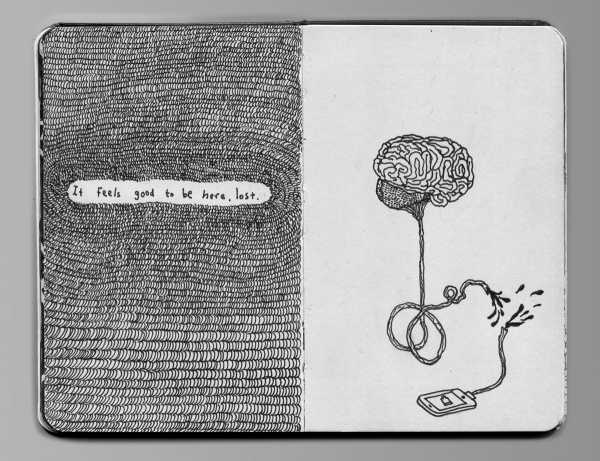 It feels good to be here, lost.